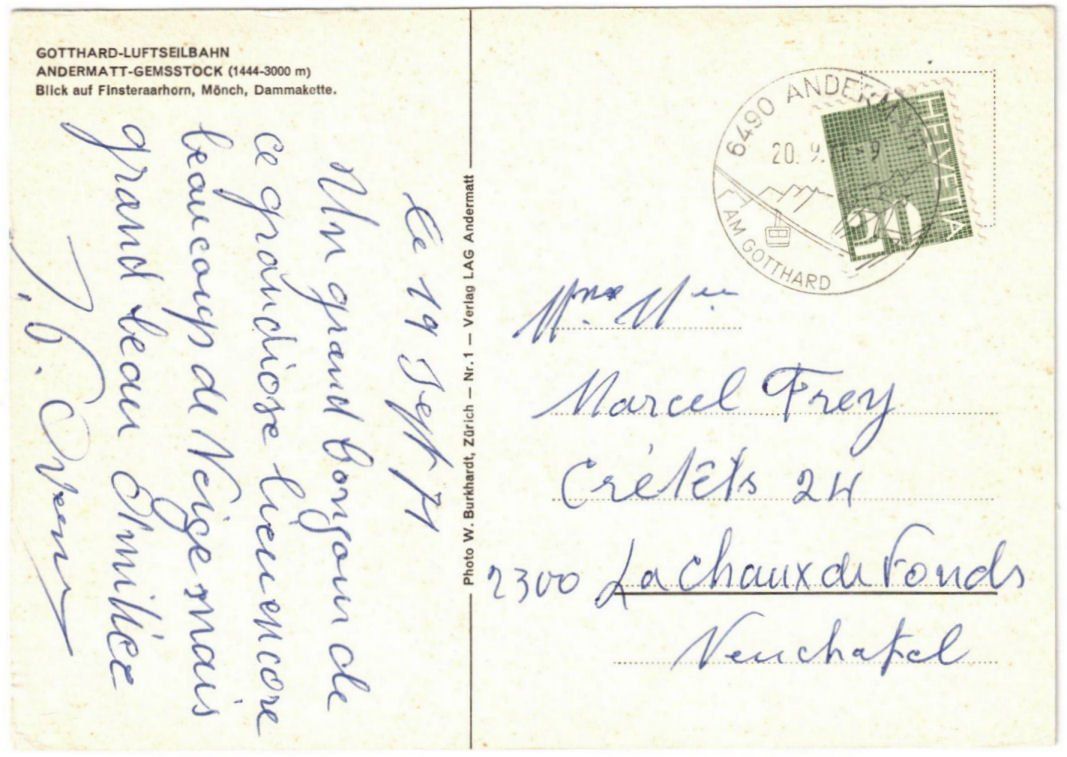 GOTTHARD-LUFTSEILBAHN
ANDERMATT-GEMSSTOCK (1444-3000 m)
Blick auf Finsteraarhorn, Mönch, Dammakette.
Le 19 Sept 71
Un grand bonjour de
ce grandiose lieu encore
beaucoup de Neige mais
grand beau
Photo W. Burkhardt, Zürich — Nr. 1 — Verlag LAG Andermatt
6490 ANDERMATT
20. 9.
AM GOTTHARD
HELVETIA
10
Marcel Frey
Crétêts 24
2300 La Chaux de Fonds
Neuchatel